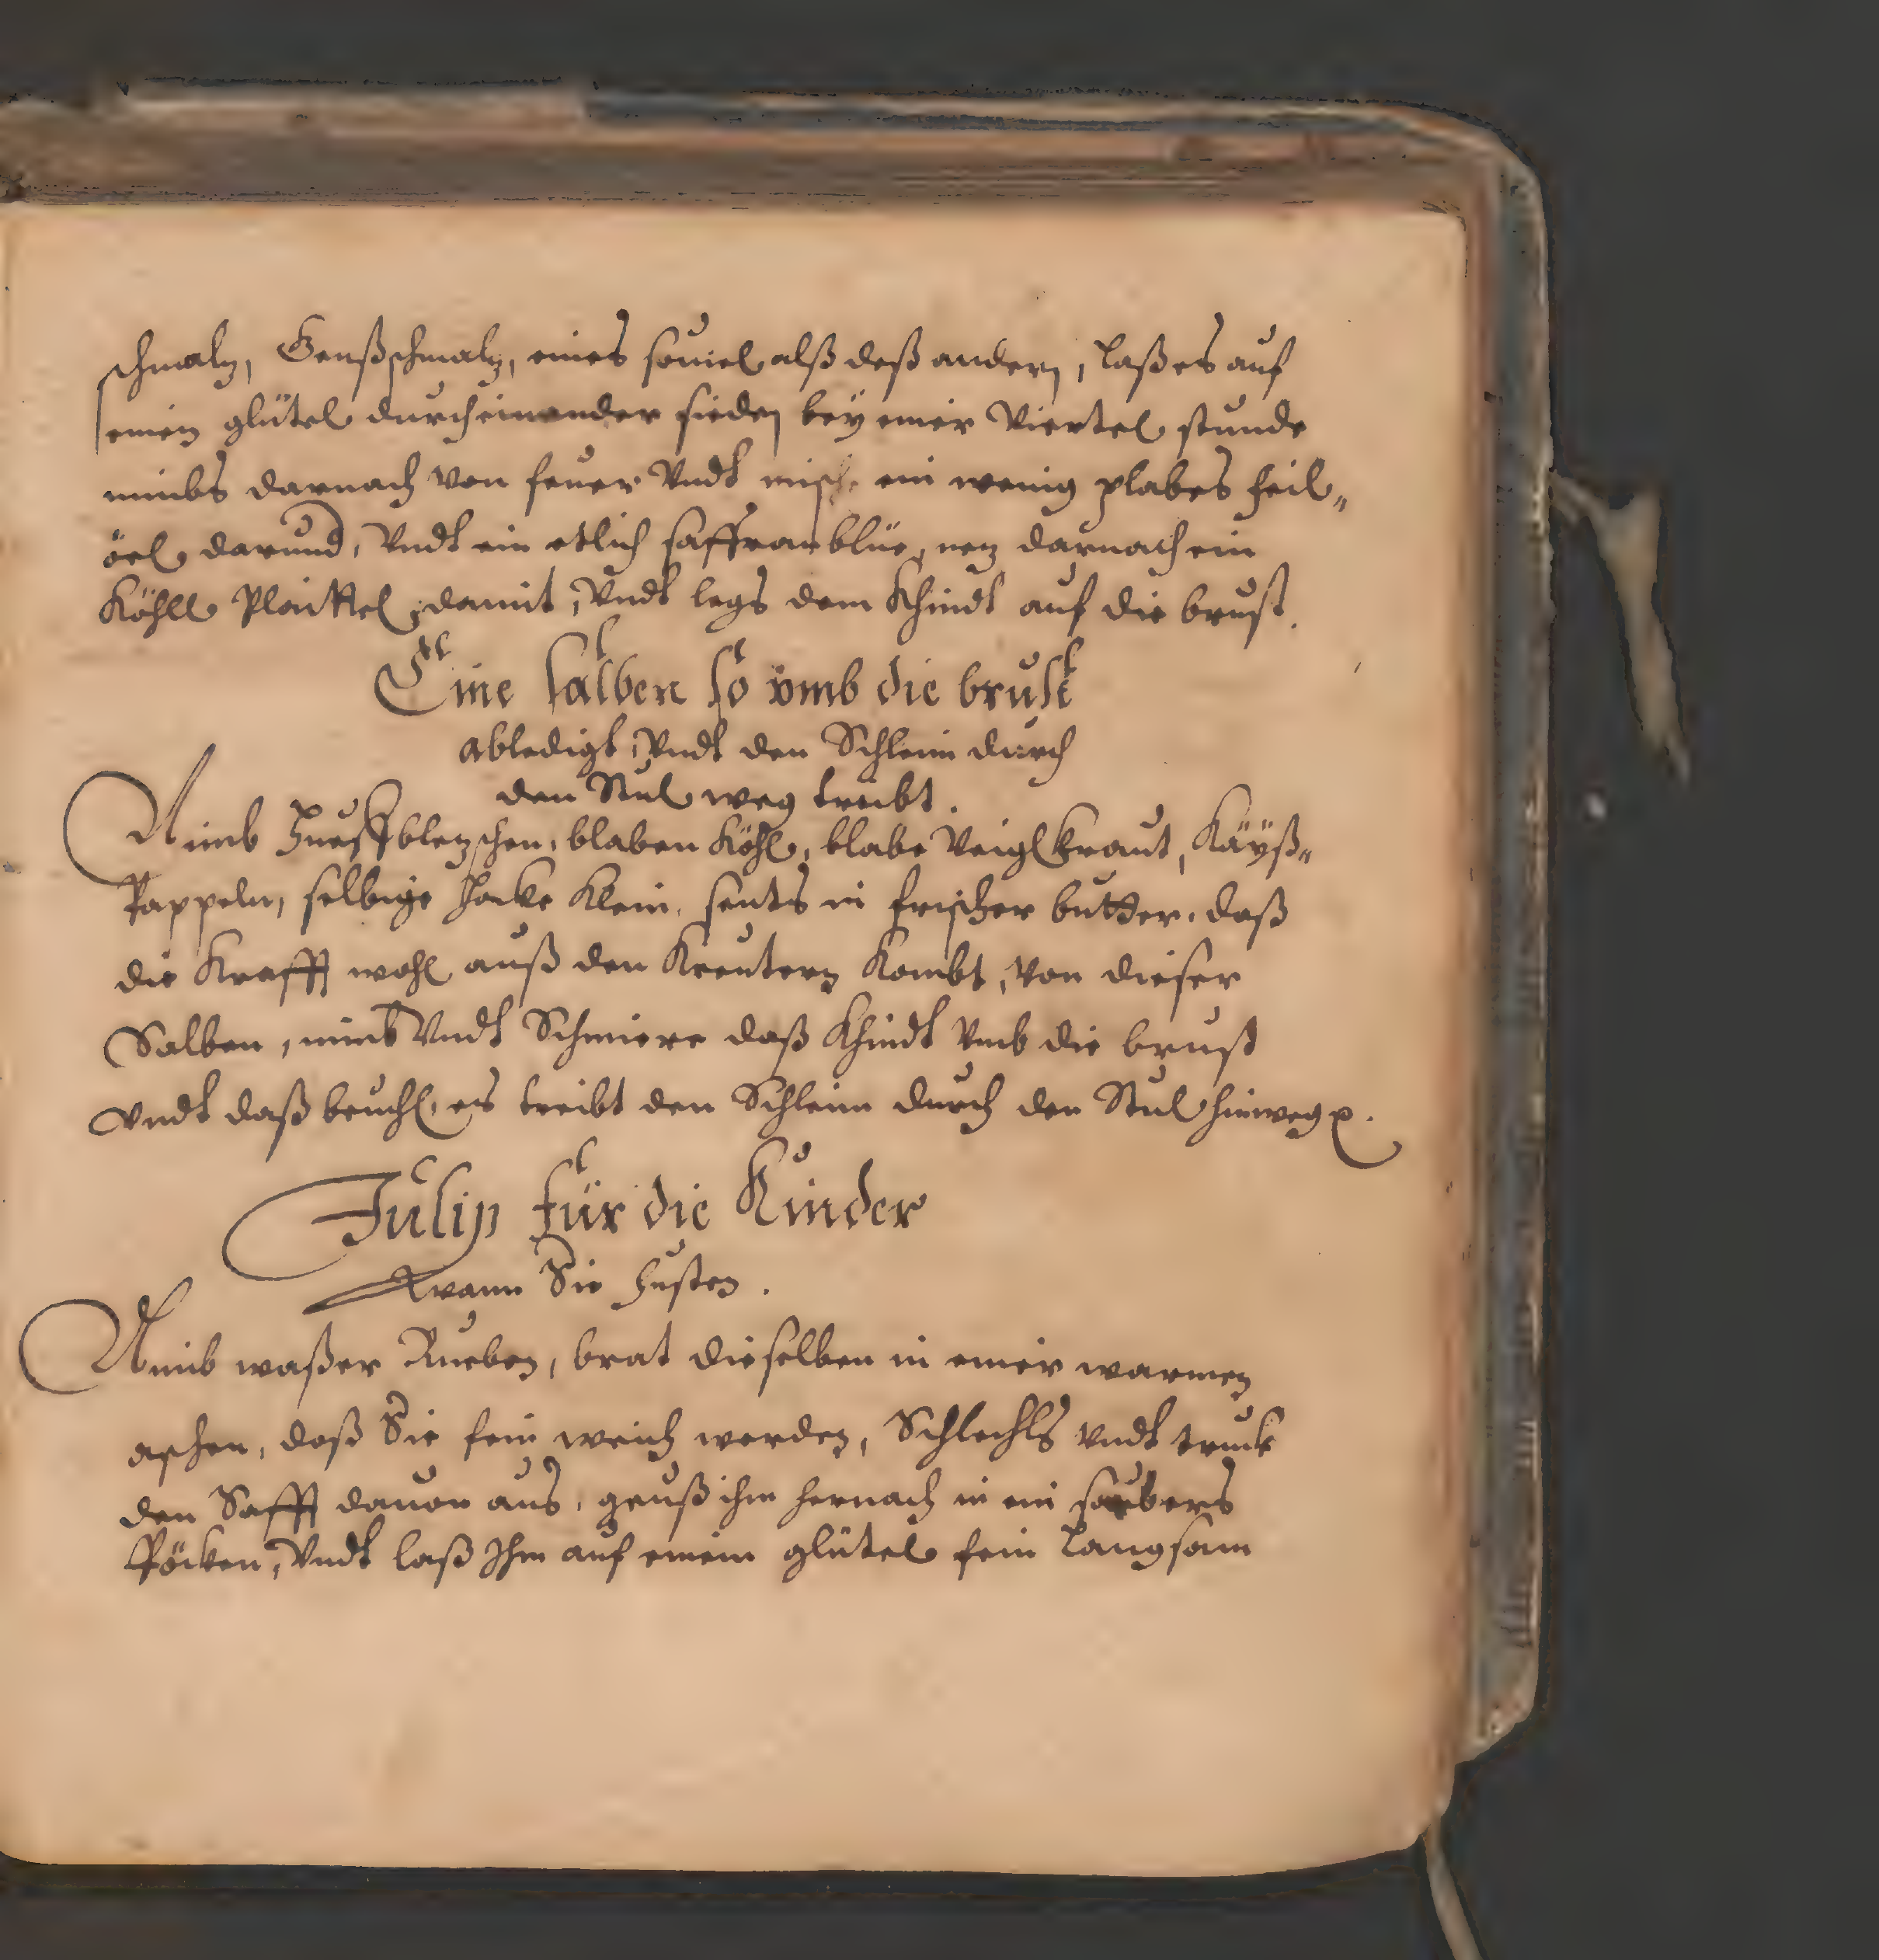 schmalz, Genßschmalz, eines souiel alß deß andern, laß es auf
einen glütel durcheinander sieden bey einer Viertel stunde
nimbs darnach von feuer Vndt misch ein wenig plabes feil„
öel darund, Vndt ein etlich saffranblüe, nez darnach ein
Köhll Plaittel damit, Vndt legs dem Khindt auf die brust.
Eine salben so vmb die brust
abledigt, Vndt den Schleim durch
den Stul weg treibt.
Nimb blaben Köhl, blabe Veiglkraut, Käyß„
Pappeln, selbige hacke klein, sents in frischer butter, daß
die Krafft wohl auß den Kreutern kombt, von dieser
Salben, nimb Vndt Schmiere daß Khindt vmb die brust
vndt daß beuchl, es treibt den Schleim durch den Stul hinweg
Julip für die Kinder
wann Sie husten.
Nimb waßer Rueben, brat dieselben in einer warmen
aschen, daß Sie fein weich werden, Vndt truck
den Safft dauon aus, geuß ihm hernach in ein saubers
Vndt laß Ihm auf einem glütel fein langsam